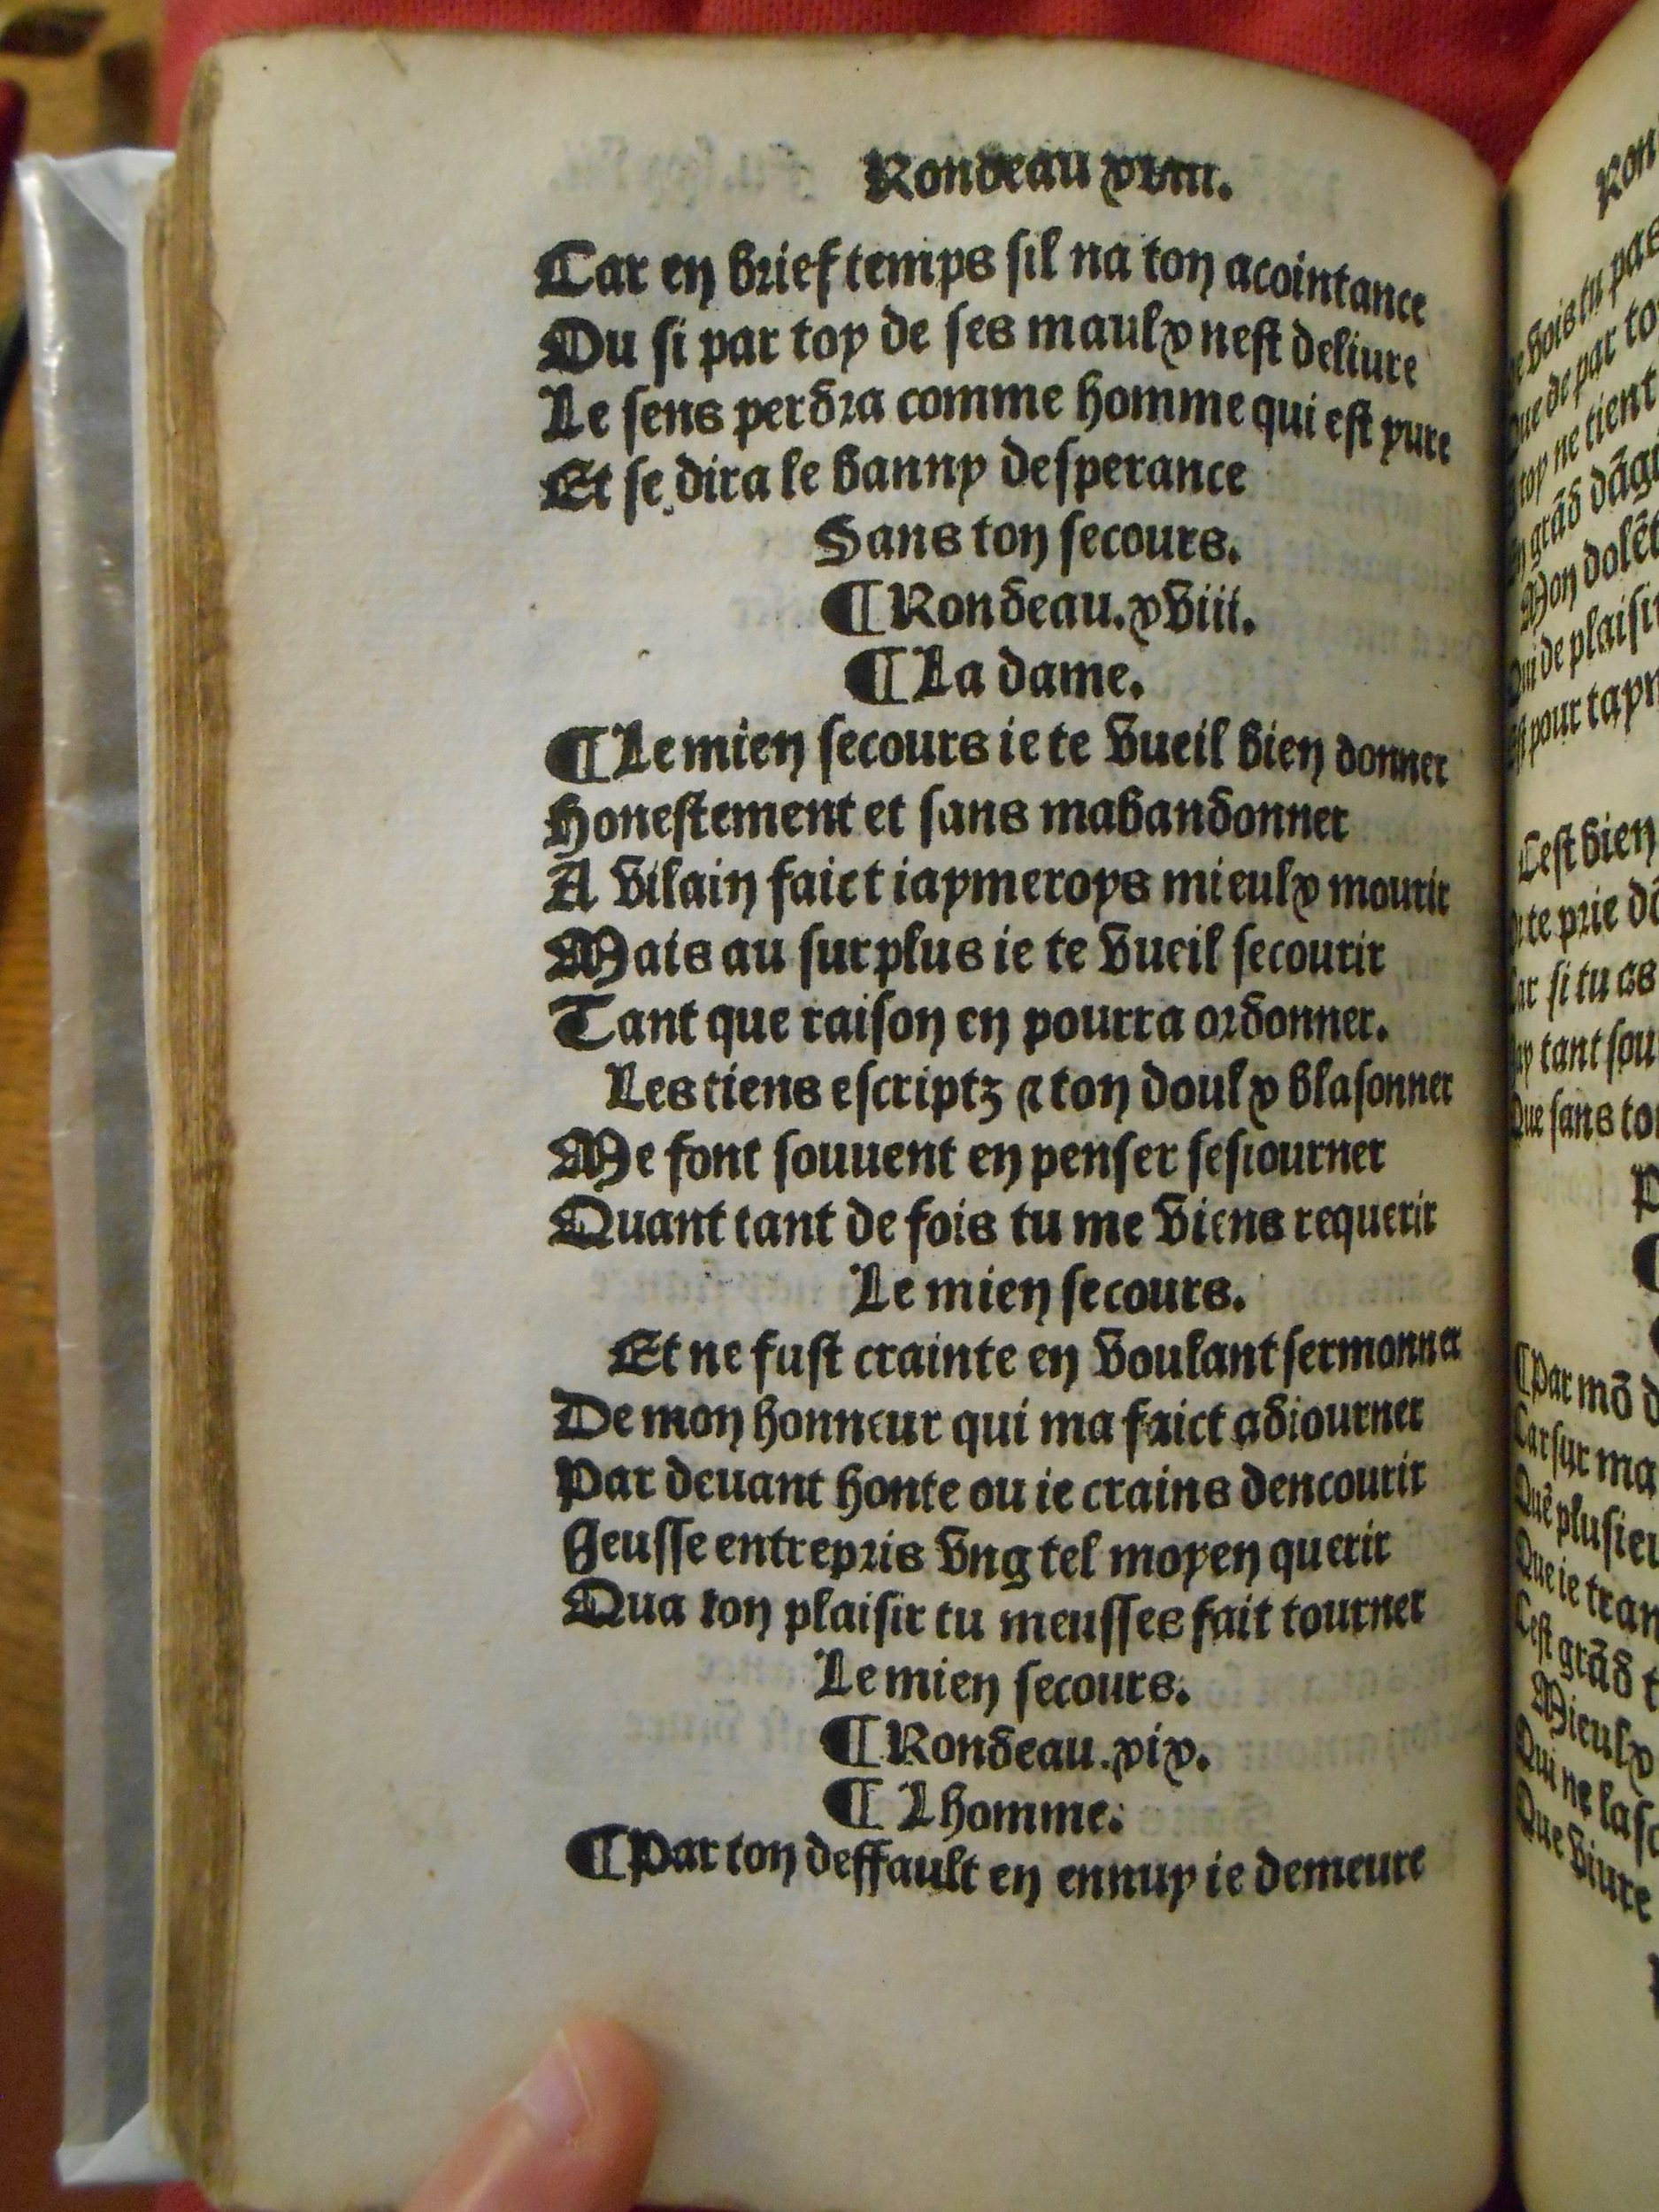 Rondeau xviii.
Car en brief temps sil na ton acointance
Ou si par toy de ses maulx nest deliure
Le sens perdra comme homme qui est yure
Et se dira le banny desperance
Sans ton secours.
¶ Rondeau. xviii.
¶ La dame.
¶ Le mien secours ie te vueil bien donner
Honestement et sans mabandonner
A vilain faict iaymeroys mieulx mourir
Mais au surplus ie te vueil secourir
Tant que raison en pourra ordonner.
Les tiens escriptz & ton doulx blasonner
Me font souuent en penser seiourner
Quant tant de fois tu me viens requerir
Le mien secours.
Et ne fust crainte en voulant sermonner
De mon honneur qui ma faict adiourner
Par deuant honte ou ie crains dencourir
Jeusse entrepris vng tel moyen querir
Qua ton plaisir tu meusses fait tourner
Le mien secours.
¶ Rondeau. xix.
¶ Lhomme.
¶ Par ton deffault en ennuy ie demeure
Ron
vois tu pas
de par to
toy ne tient
grãd dãg
Mon dolẽt
de plaisi
pour tayn
Cest bien
te prie
si tu as
tant sou
Que sans to
¶ Par mõ d
Car sur ma
Que plusieu
Que ie tran
Cest grãd t
Mieulx
Qui ne laf
Que viure